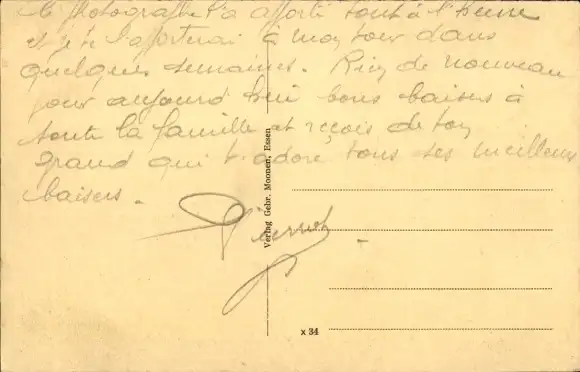 le photographe l'a apporté tout à l'heure
et je l'apporterai à mon tour dans
quelques semaines. Rien de nouveau
pour aujourd'hui bons baisers à
toute la famille et reçois de ton
grand qui t'adore tous ses meilleurs
baisers.
Pierrot
Verlag Gebr. Moonen, Essen
x 34